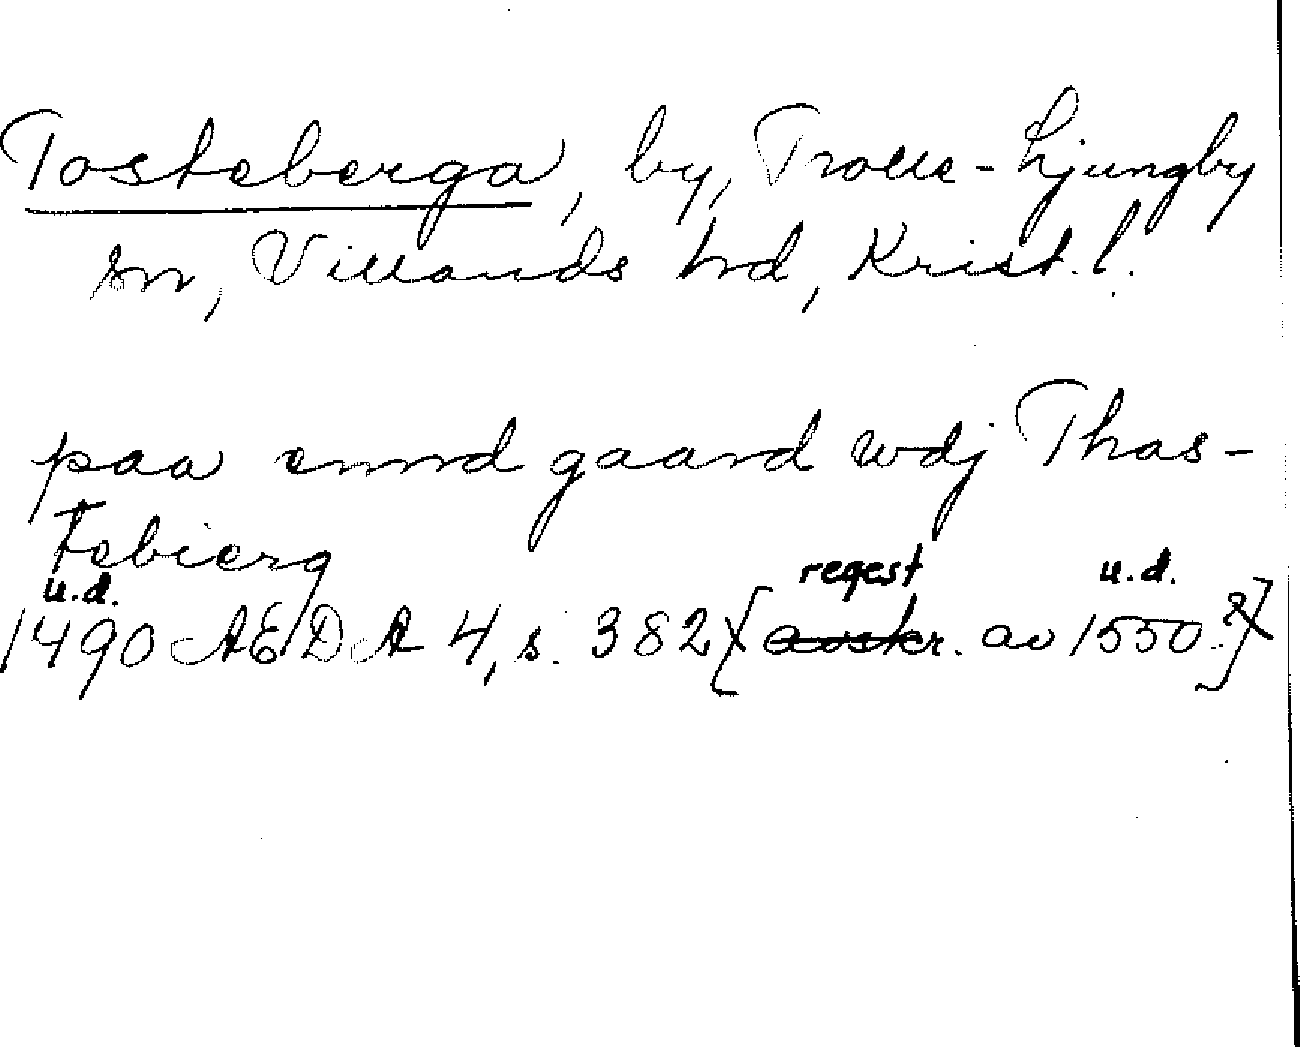 Tosteberga, by, Trolle-Ljungby
sn, Villands hd, Krist. l.
paa ennd gaard wdj Thas-
tebierg
u.d. regest u.d.
1490 ÆDA 4, s. 382 [avskr. av 1550.?]